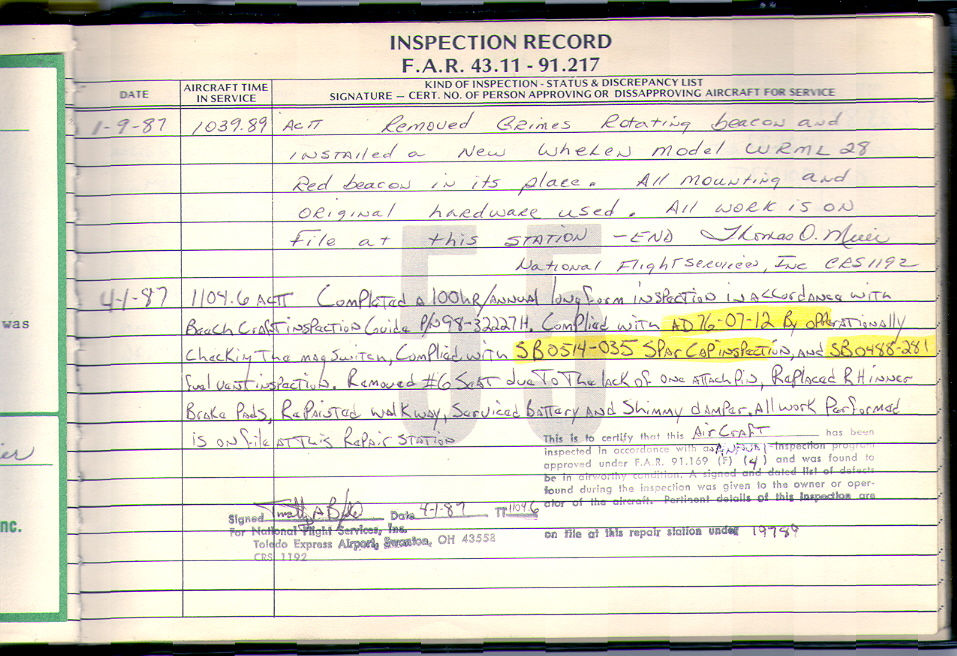 INSPECTION RECORD
F.A.R. 43.11 - 91.217
DATE
AIRCRAFT TIME IN SERVICE
KIND OF INSPECTION - STATUS & DISCREPANCY LIST
SIGNATURE — CERT. NO. OF PERSON APPROVING OR DISSAPPROVING AIRCRAFT FOR SERVICE
1-9-87 1039.89 ACTT Removed Grimes Rotating beacon and
installed a New Whelen model WRML 28
Red beacon in its place. All mounting and
original hardware used. All work is on
File at this STATION - END Thomas O. Muir
National Flight Services, Inc CRS 1192
4-1-87 1104.6 ACTT Completed a 100hr/annual long form inspection in accordance with
Beech Craft inspection Guide P/N 98-32227H. Complied with AD 76-07-12 By operationally
Checking The mag switch, Complied with SB0514-035 Spar Cap inspection, and SB0488-281
fuel vent inspection. Removed #6 Seat due To The lack of one attach pin, Replaced RH inner
Brake Pads, Repainted walkway, Serviced Battery and Shimmy damper. All work Performed
is on file at This Repair Station
55
This is to certify that this AirCraft has been
inspected in accordance with -inspection program
approved under F.A.R. 91.169 (F) (4) and was found to
be in airworthy condition. A signed and dated list of defects
found during the inspection was given to the owner or oper-
ator of the aircraft. Pertinent details of this inspection are
on file at this repair station under 19789
Signed Date 4-1-87 TT 1104.6
For National Flight Services, Inc.
Toledo Express Airport, Swanton, OH 43558
CRS 1192
was
nc.